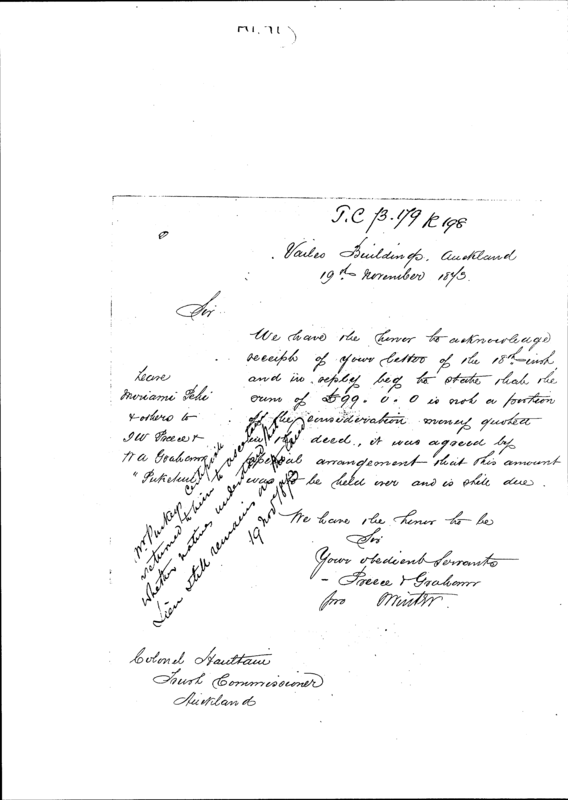 T.C. 73.179 R 198
Vailes Buildings. Auckland
19th November 1873.
Sir
We have the honor to acknowledge
receipt of your letter of the 18th inst
and in reply beg to state that the
sum of £99. 0. 0 is not a portion
of the consideration money quoted
in the deed, it was agreed by
special arrangement that this amount
was to be held over and is still due.
We have the honor to be
Sir
Your obedient Servants
Preece & Graham
pro
Lease
& others to
J W Preece &
W A Graham
Mr Puckey certificate
returned & him to ascertain
whether natives understand that
Lien still remains on the land
19 Nov/873
Colonel Haultain
Trust Commissioner
Auckland